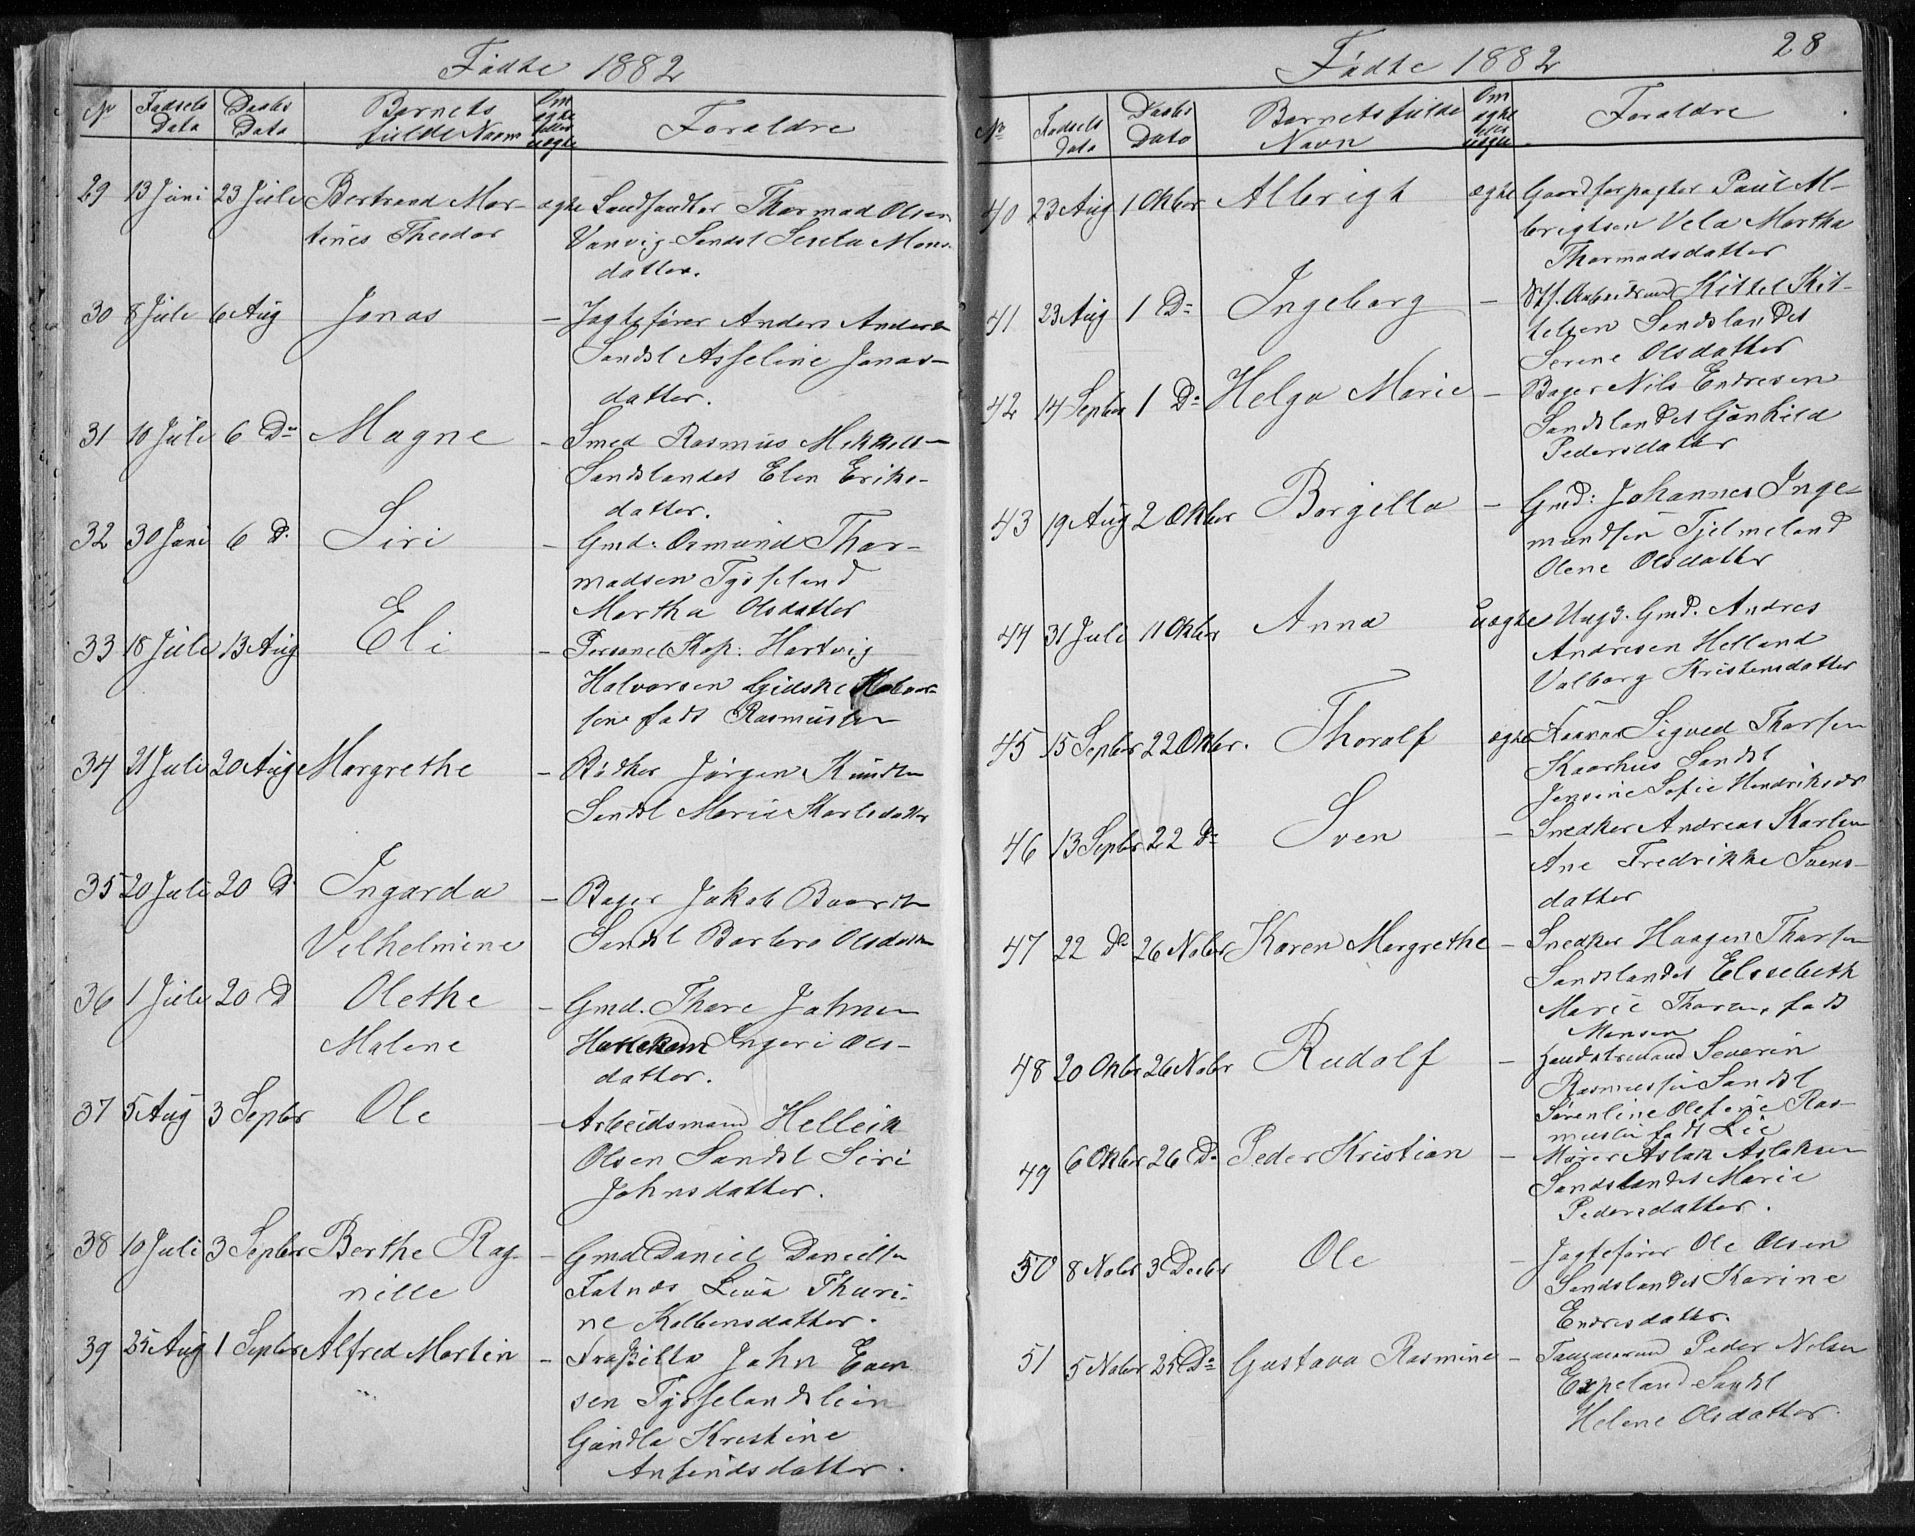 Fødte 1882
Nr Fødsels Dato Daabs Dato Barnets fulde Navn Om ægte eller uægte Forældre
29 13 Juni 23 Juli Bertrand Mar- ægte Landhandler Thormod Olsen
tines Theodor Vanvig Sandsl Serela Mons-
datter.
30 8 Juli 6 Aug Jonas - Jagtefører Anders Andersen
Sandsl Asseline Jonas-
datter.
31 10 Juli 6 Do Magne - Smed Rasmus Mekkels-
Sandslandet Elen Eriks-
datter.
32 30 Juni 6 D. Siri - Gmd: Osmund Thor-
madsen Tysseland
Martha Olsdatter
33 18 Juli 13 Aug Eli - Personel Kap: Hartvig
Halvorsen Gidske Halvor-
sen født Rasmussen
34 21 Juli 20 Aug Margrethe - Bødker Jørgen Knudsen
Sandsl Marie Karlsdatter
35 20 Juli 20 D Ingarda - Bager Jakob Baardsen
Vilhelmine Sandsl Barbro Olsdatter
36 1 Juli 20 D Olethe - Gmd. Thore Johnsen
Malene Ingeri Ols-
datter.
37 5 Aug 3 Septbr Ole - Arbeidsmand Helleik
Olsen Sandsl Siri
Johnsdatter.
38 10 Juli 3 Septbr Berthe Rag- - Gmd Daniel Danielsen
nille Fatnæs Lina Thuri-
ne Kolbensdatter.
39 25 Aug 1 Septbr Alfred Martin - John Even
sen Tysselandslien
Gundla Kristine
Anfindsdatter.
Fødte 1882 28
Nr Fødsels Dato Daabs Dato Barnets fulde Navn Om ægte eller uægte Forældre
40 23 Aug 1 Oktbr Albrigt ægte Gaardforpagter Paul Al-
brigtsen Vela Martha
Thormodsdatter
41 23 Aug 1 Do Ingeborg - Arbeidsmand Kittel Kit-
telsen Sandslandet
Serine Olsdatter
42 14 Septbr 1 Do Helga Marie - Bager Nils Endresen
Sandslandet Gunhild
Pedersdatter
43 19 Aug 2 Oktbr Borgilla - Gmd: Johannes Inge-
mundsen Tjelmeland
Olene Olsdatter
44 31 Juli 11 Oktbr Anna uægte Ungk. Gmd. Andres
Andresen Helland
Valborg Kristensdatter
45 15 Septbr 22 Oktbr. Thoralf ægte Sigved Thorsen
Kaarhus Sandsl
Jensine Sofie Hendriksdr
46 13 Septbr 22 Do Sven - Snedker Andreas Karlsen
Ane Fredrikke Svens-
datter
47 22 Do 26 Nobr Karen Margrethe - Snedker Haagen Thorsen
Sandslandet Elssebeth
Marie Thorsen, født
Monsen
48 20 Oktbr 26 Nobr Rudolf - Handelsmand Severin
Rasmussen Sandsl
Sørenline Olefine Ras-
mussen født Lie
49 6 Oktbr 26 Do Peder Kristian - Murer Aslak Aslaksen
Sandslandet Marie
Pedersdatter.
50 8 Nobr 3 Decbr Ole - Jagtefører Ole Olsen
Sandslandet Karine
Endresdatter.
51 5 Nobr 25 Do Gustava Rasmine - Peder Nilsen
Espeland Sandsl
Helene Olsdatter.